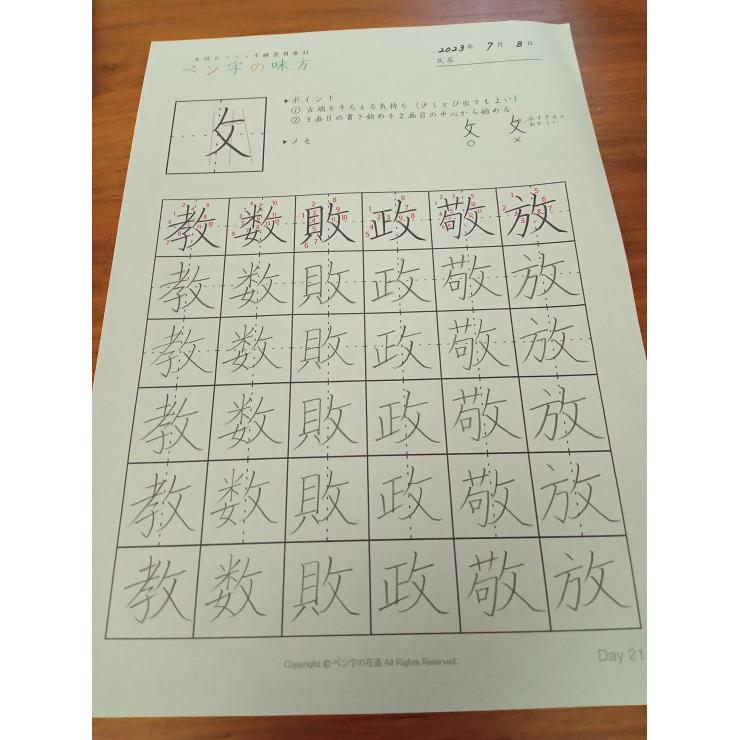 一生役立つペン字練習用教材
ペン字の味方
2023年 7月 8日
氏名
攵
▶ポイント
① 左端をそろえる気持ち（少しとび出てもよい）
② 3画目の書き始めを2画目の中心から始める
攵 攵 右すぎると
おかしい
○ ×
▶メモ
教 数 敗 政 敬 放
教 数 敗 政 敬 放
教 数 敗 政 敬 放
教 数 敗 政 敬 放
教 数 敗 政 敬 放
教 数 敗 政 敬 放
Copyright © ペン字の花道 All Rights Reserved.
Day 21